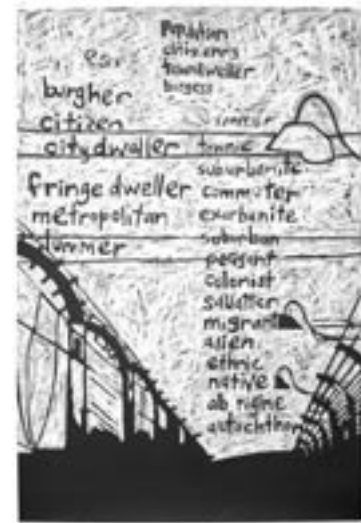 population
townsweller
burgess
burgher
citizen
citydweller
fringe dweller
metropolitan
townie
suburbanite
commuter
exurbanite
suburban
peasant
colonist
squatter
migrant
alien
ethnic
native